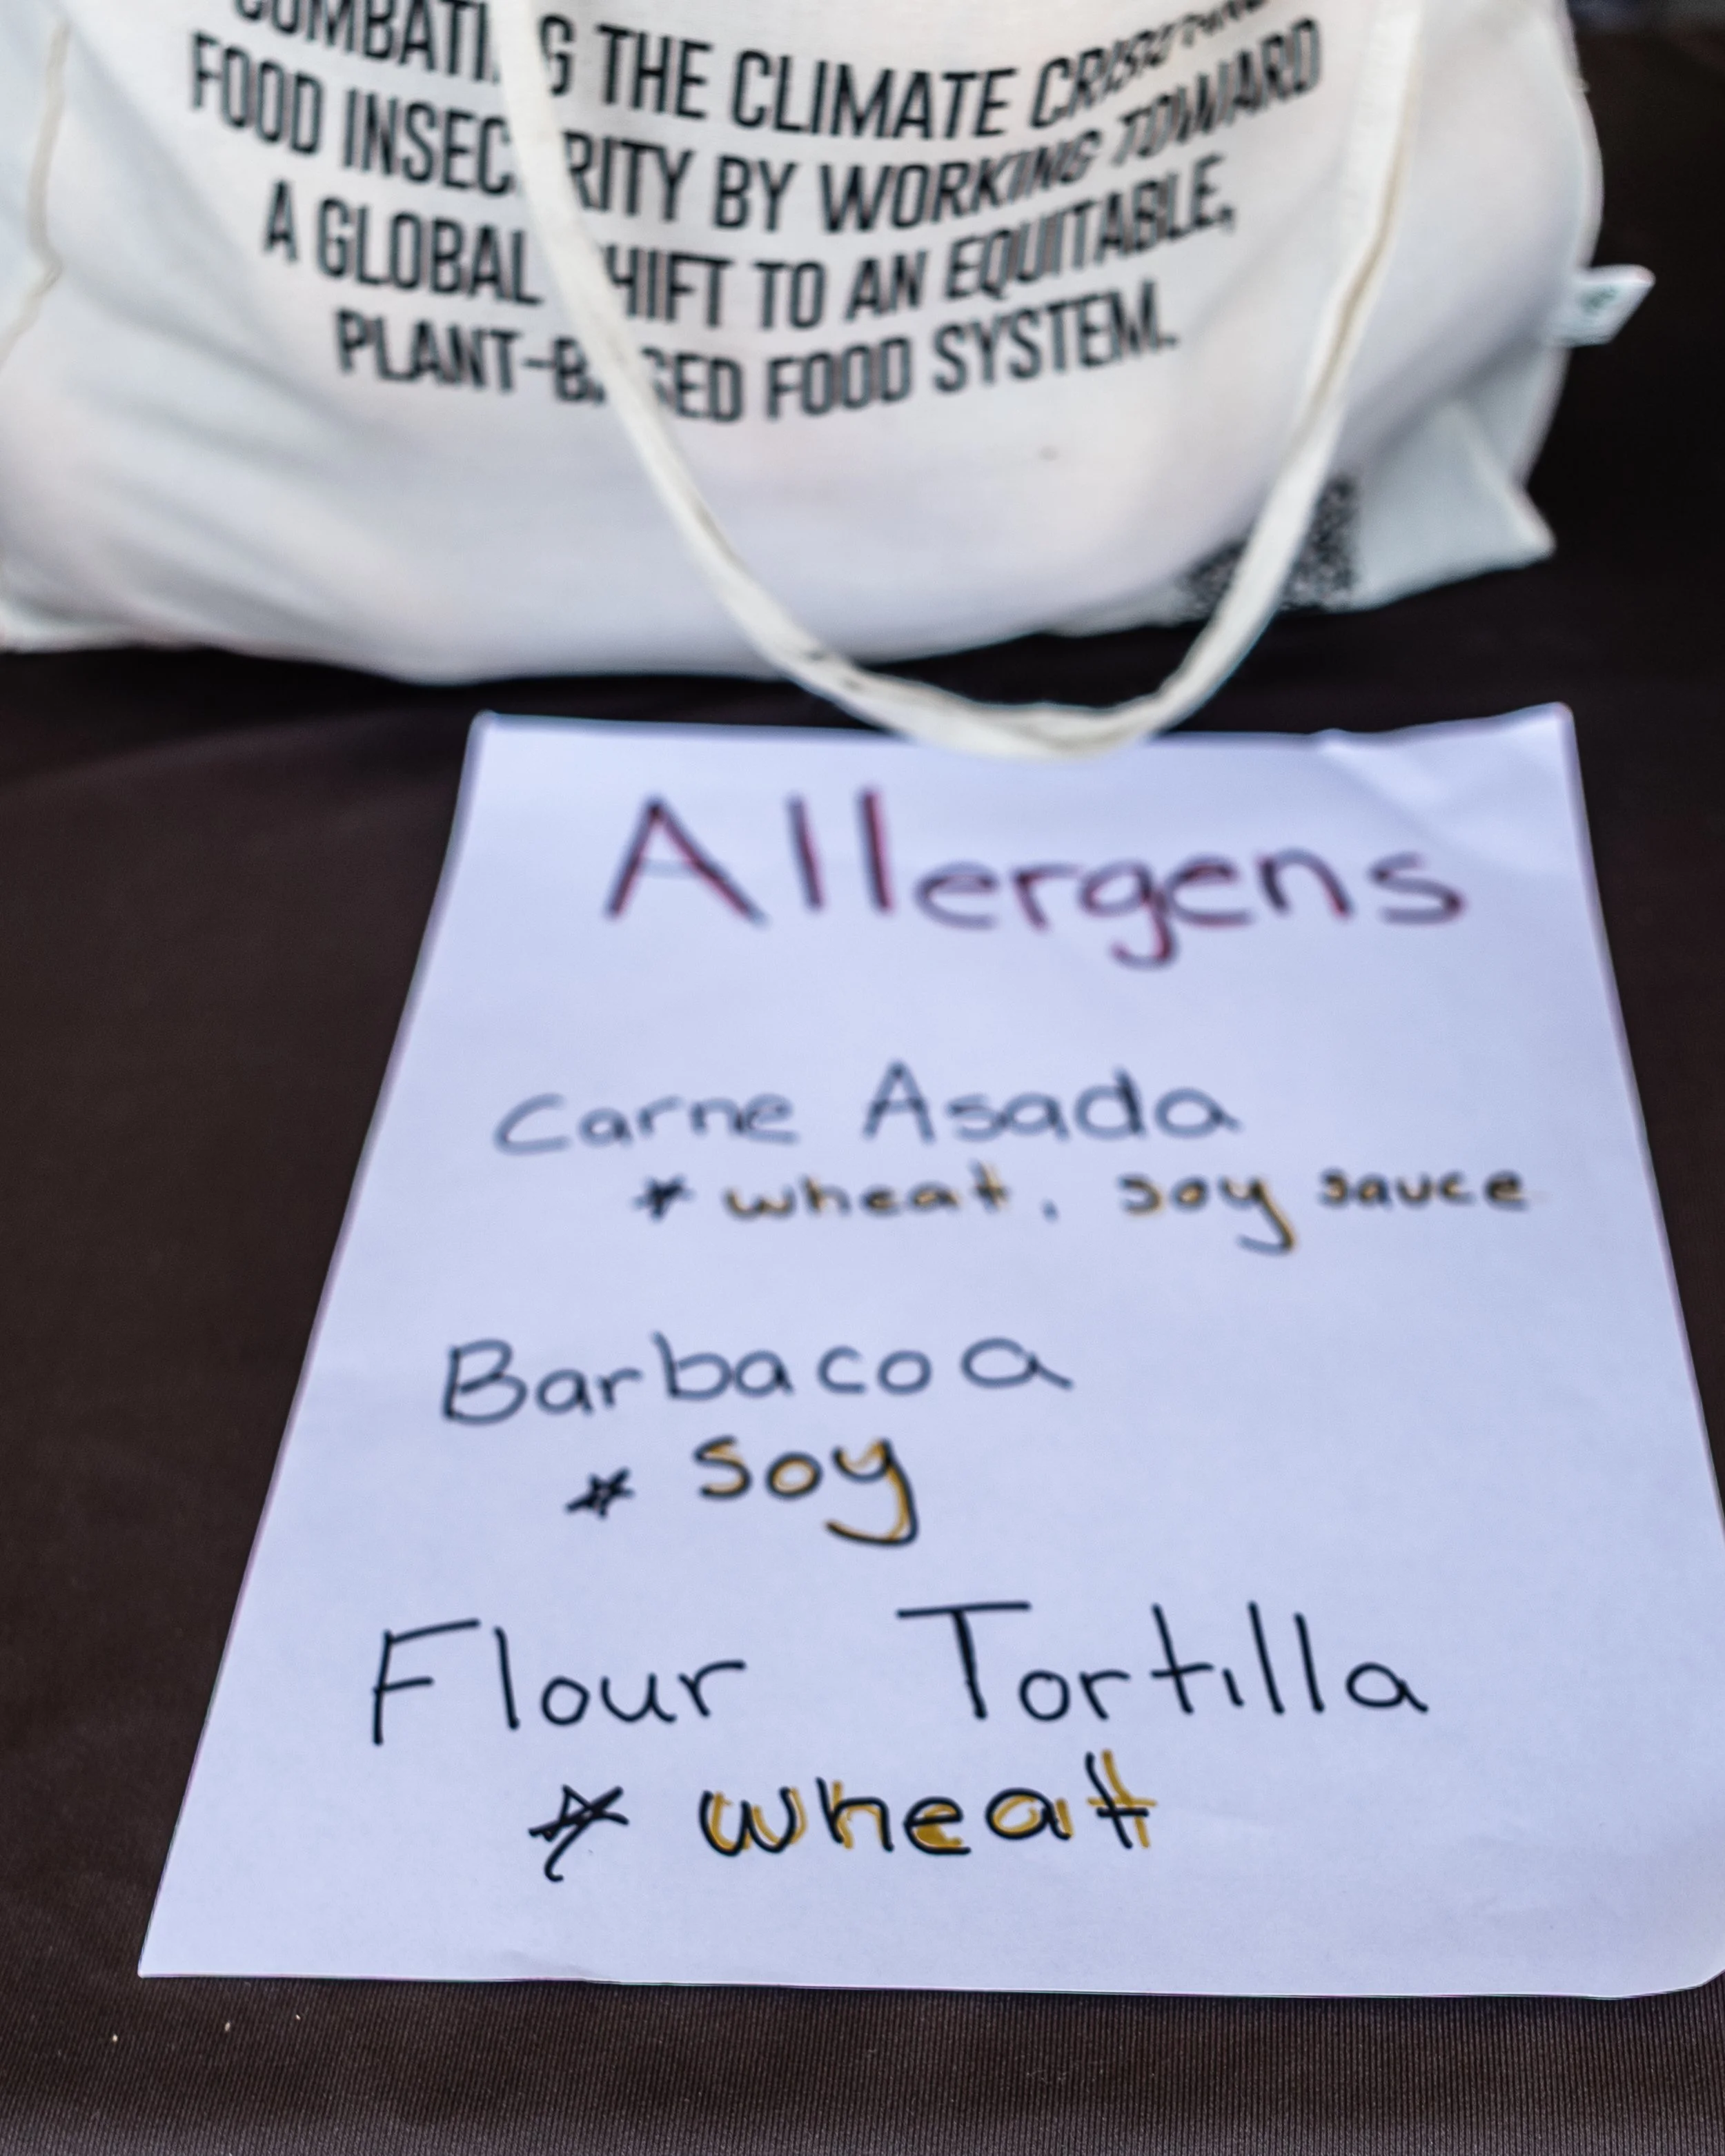 THE CLIMATE
FOOD INSECURITY BY WORKING TOWARD
A GLOBAL SHIFT TO AN EQUITABLE,
PLANT-BASED FOOD SYSTEM.
Allergens
Carne Asada
* wheat, soy sauce
Barbacoa
* soy
Flour Tortilla
* wheat